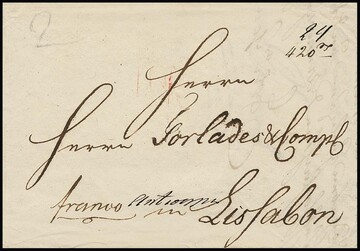 24
420
Herrn
Herrn Torlades & Comp
franco Antwerpen in Lissabon